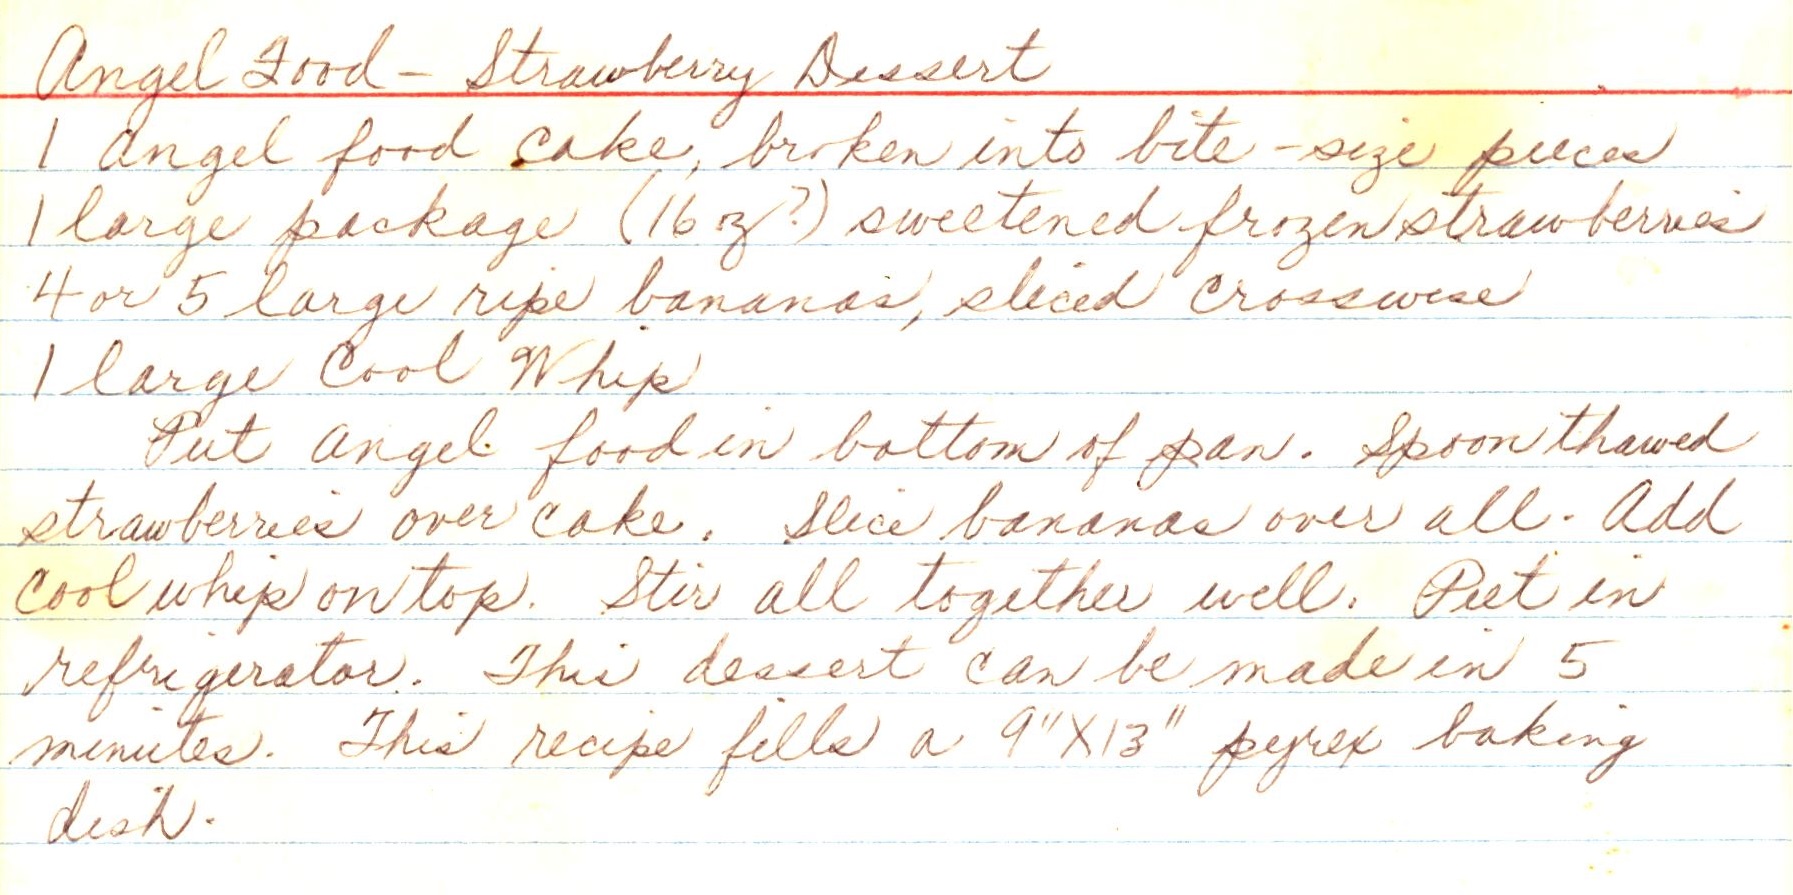 Angel Food - Strawberry Dessert
1 angel food cake, broken into bite-size pieces
1 large package (16 oz?) sweetened frozen strawberries
4 or 5 large ripe bananas, sliced crosswise
1 large Cool Whip
Put angel food in bottom of pan. Spoon thawed
strawberries over cake. Slice bananas over all. Add
cool whip on top. Stir all together well. Put in
refrigerator. This dessert can be made in 5
minutes. This recipe fills a 9"X13" pyrex baking
dish.